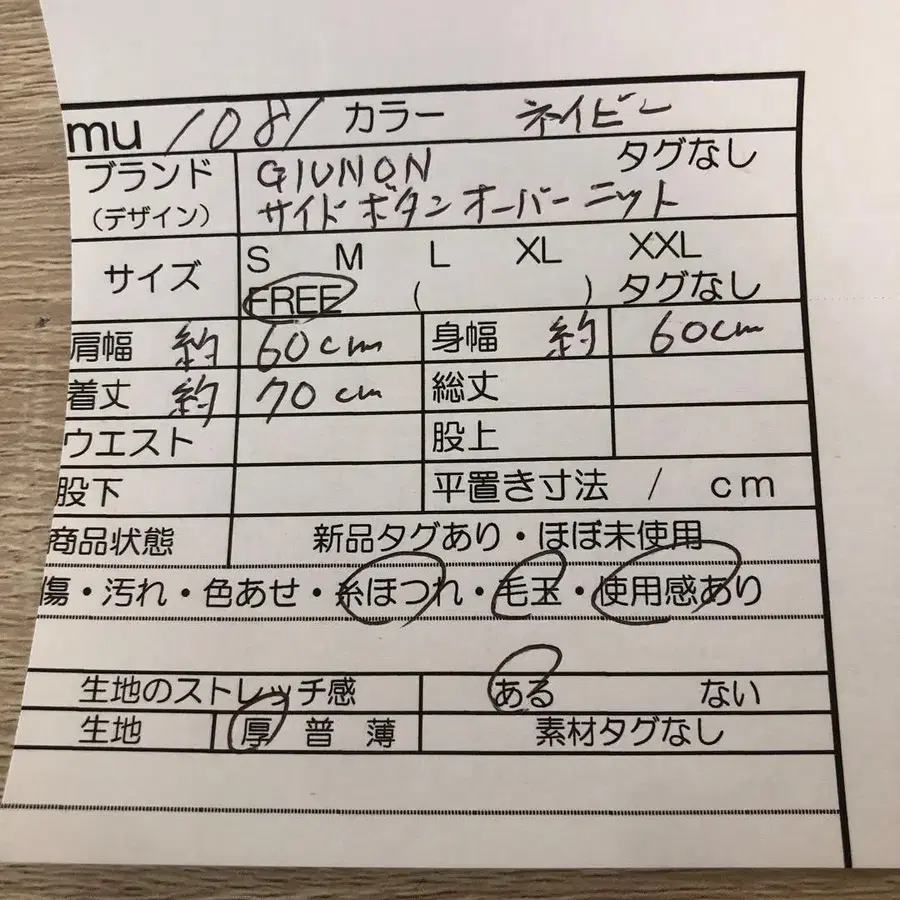 mu 1081 カラー ネイビー
ブランド GIUNON タグなし
(デザイン) サイドボタンオーバーニット
S M L XL XXL
サイズ FREE ( ) タグなし
肩幅 約 60cm 身幅 約 60cm
着丈 約 70cm 総丈
ウエスト 股上
股下 平置き寸法 / cm
商品状態 新品タグあり・ほぼ未使用
傷・汚れ・色あせ・糸ほつれ・毛玉・使用感あり
生地のストレッチ感 ある ない
生地 厚 普 薄 素材タグなし